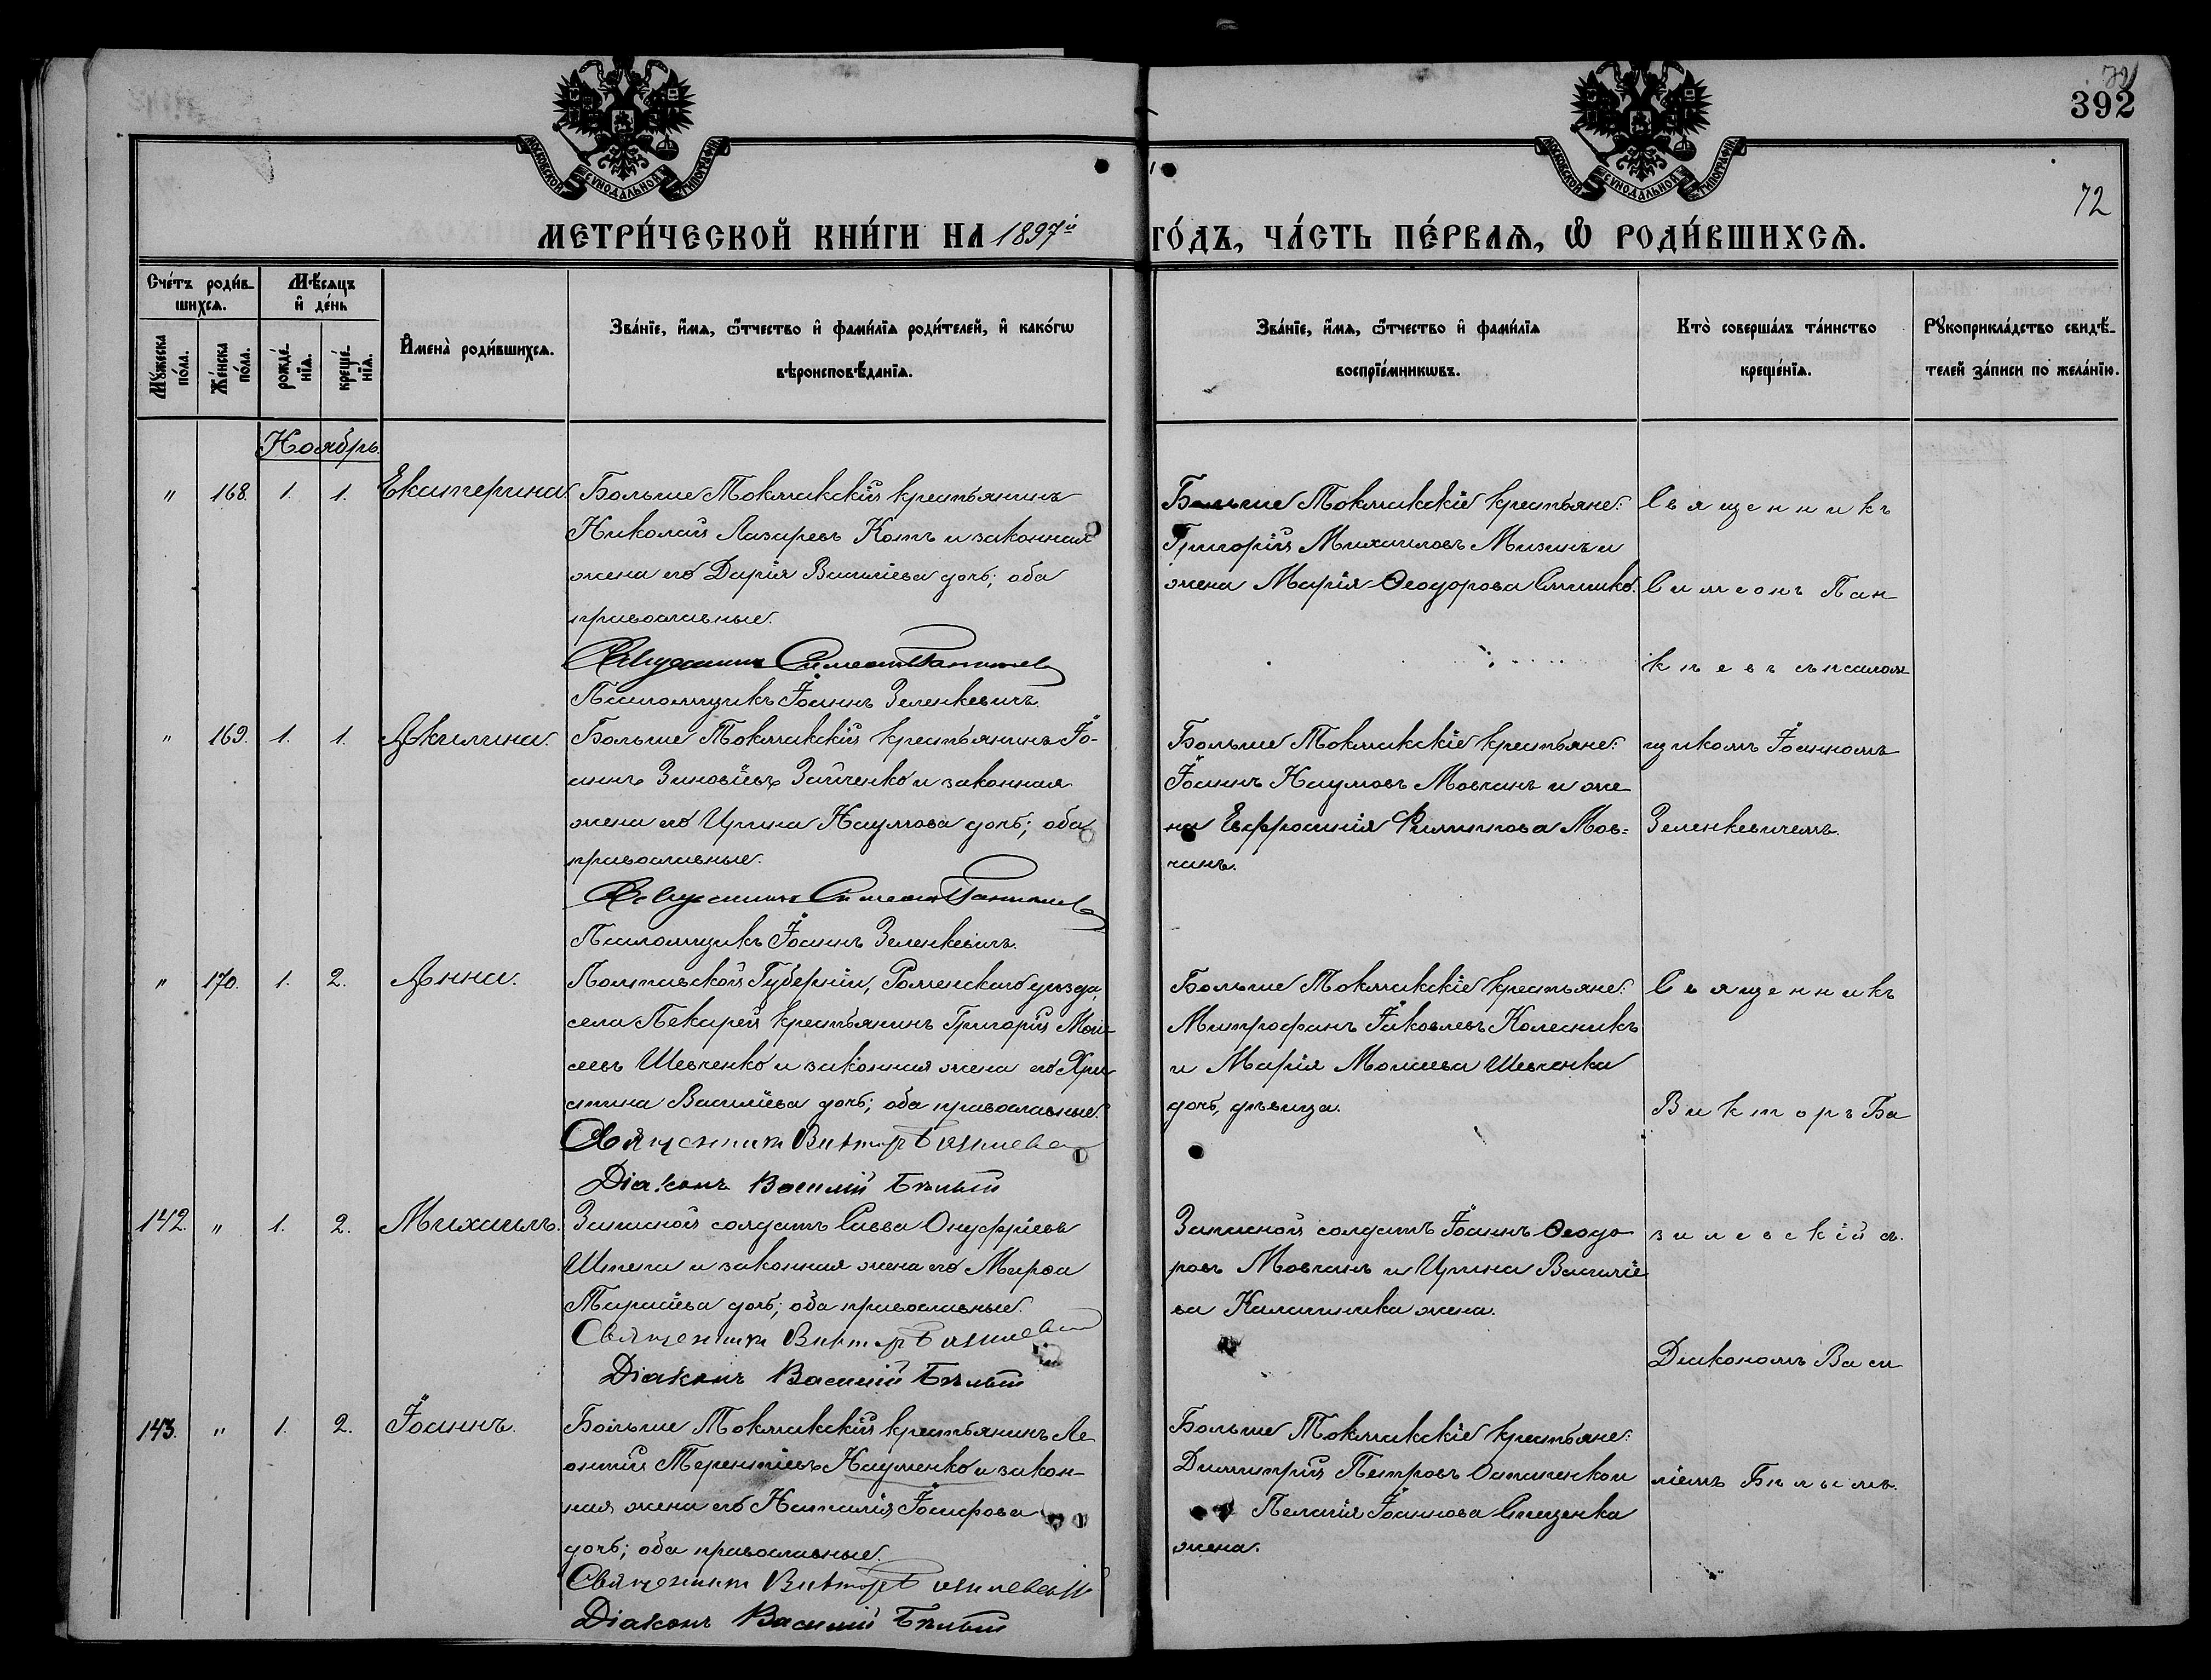 392
72
МОСКОВСКОЙ СѴНОДАЛЬНОЙ ТИПОГРАФІИ
МОСКОВСКОЙ СѴНОДАЛЬНОЙ ТИПОГРАФІИ
МЕТРИ́ЧЕСКОЙ КНИ́ГИ НА 1897й ГО́ДЪ, ЧА́СТЬ ПЕ́РВАѦ, Ѽ РОДИ́ВШИХСѦ.
Сче́тъ роди́вшихсѧ.
Мꙋ́жеска по́ла.
Же́нска по́ла.
Мѣ́сѧцъ и҆ де́нь
рожде́нїѧ.
креще́нїѧ.
И҆мена̀ роди́вшихсѧ.
Зва́нїе, и҆́мѧ, ѻ҆́тчество и҆ фами́лїѧ роди́телей, и҆ како́гѡ
вѣроисповѣ́данїѧ.
Зва́нїе, и҆́мѧ, ѻ҆́тчество и҆ фами́лїѧ
воспрїе́мникѡвъ.
Кто̀ соверша́лъ та́инство
креще́нїѧ.
Рꙋкоприкла́дство свидѣ́-
телей за́писи по жела́нїю.
Ноябрь.
" 168. 1. 1. Екатерина.
Больше Токмакскій крестьянинъ
Николай Лазаревъ Котъ и законная
жена его Дарія Василіева дочь; оба
православные.
Священникъ Симеонъ Панкѣевъ
Псаломщикъ Іоаннъ Зеленкевичъ.
Больше Токмакскіе крестьяне:
Григорій Михаиловъ Мизинъ и
жена Марія Ѳеодорова
Священникъ
Симеонъ Пан
кѣевъ съ псалом
" 169. 1. 1. Акилина.
Больше Токмакскій крестьянинъ Іо-
аннъ Зиновіевъ Зайченко и законная
жена его Ирина Наумова дочь; оба
православные.
Священникъ Симеонъ Панкѣевъ
Псаломщикъ Іоаннъ Зеленкевичъ.
Больше Токмакскіе крестьяне:
Іоаннъ Наумовъ Мовчанъ и же
на Евфросинія Филиппова Мов=
чанъ.
щикомъ Іоанномъ
Зеленкевичемъ.
" 170. 1. 2. Анна.
Полтавской Губерніи, Роменскаго уѣзда,
села Пекарей крестьянинъ Григорій Мои
сеевъ Шевченко и законная жена его Хри
стина Василіева дочь; оба православные.
Священникъ Викторъ Базилевскій
Діаконъ Василій Бѣлый
Больше Токмакскіе крестьяне:
Митрофанъ Іаковлевъ Колесникъ
и Марія Моисеева Шевченка
дочь, дѣвица.
Священникъ
Викторъ Ба
142. " 1. 2. Михаилъ.
Запасной солдатъ Савва Онуфріевъ
Штепа и законная жена его Марѳа
Тарасіева дочь; оба православные.
Священникъ Викторъ Базилевскій
Діаконъ Василій Бѣлый
Запасной солдатъ Іоаннъ Ѳеодо
ровъ Мовчанъ и Ирина Василіе
ва жена.
зилевскій съ
Діакономъ Васи
143. " 1. 2. Іоаннъ.
Больше Токмакскій крестьянинъ Ле
онтій Терентіевъ Науменко и закон-
ная жена его Наталія Іосифова
дочь; оба православные.
Священникъ Викторъ Базилевскій
Діаконъ Василій Бѣлый
Больше Токмакскіе крестьяне:
Димитрій Петровъ Остапенко и
Пелагія Іоаннова
жена.
ліемъ Бѣлымъ.